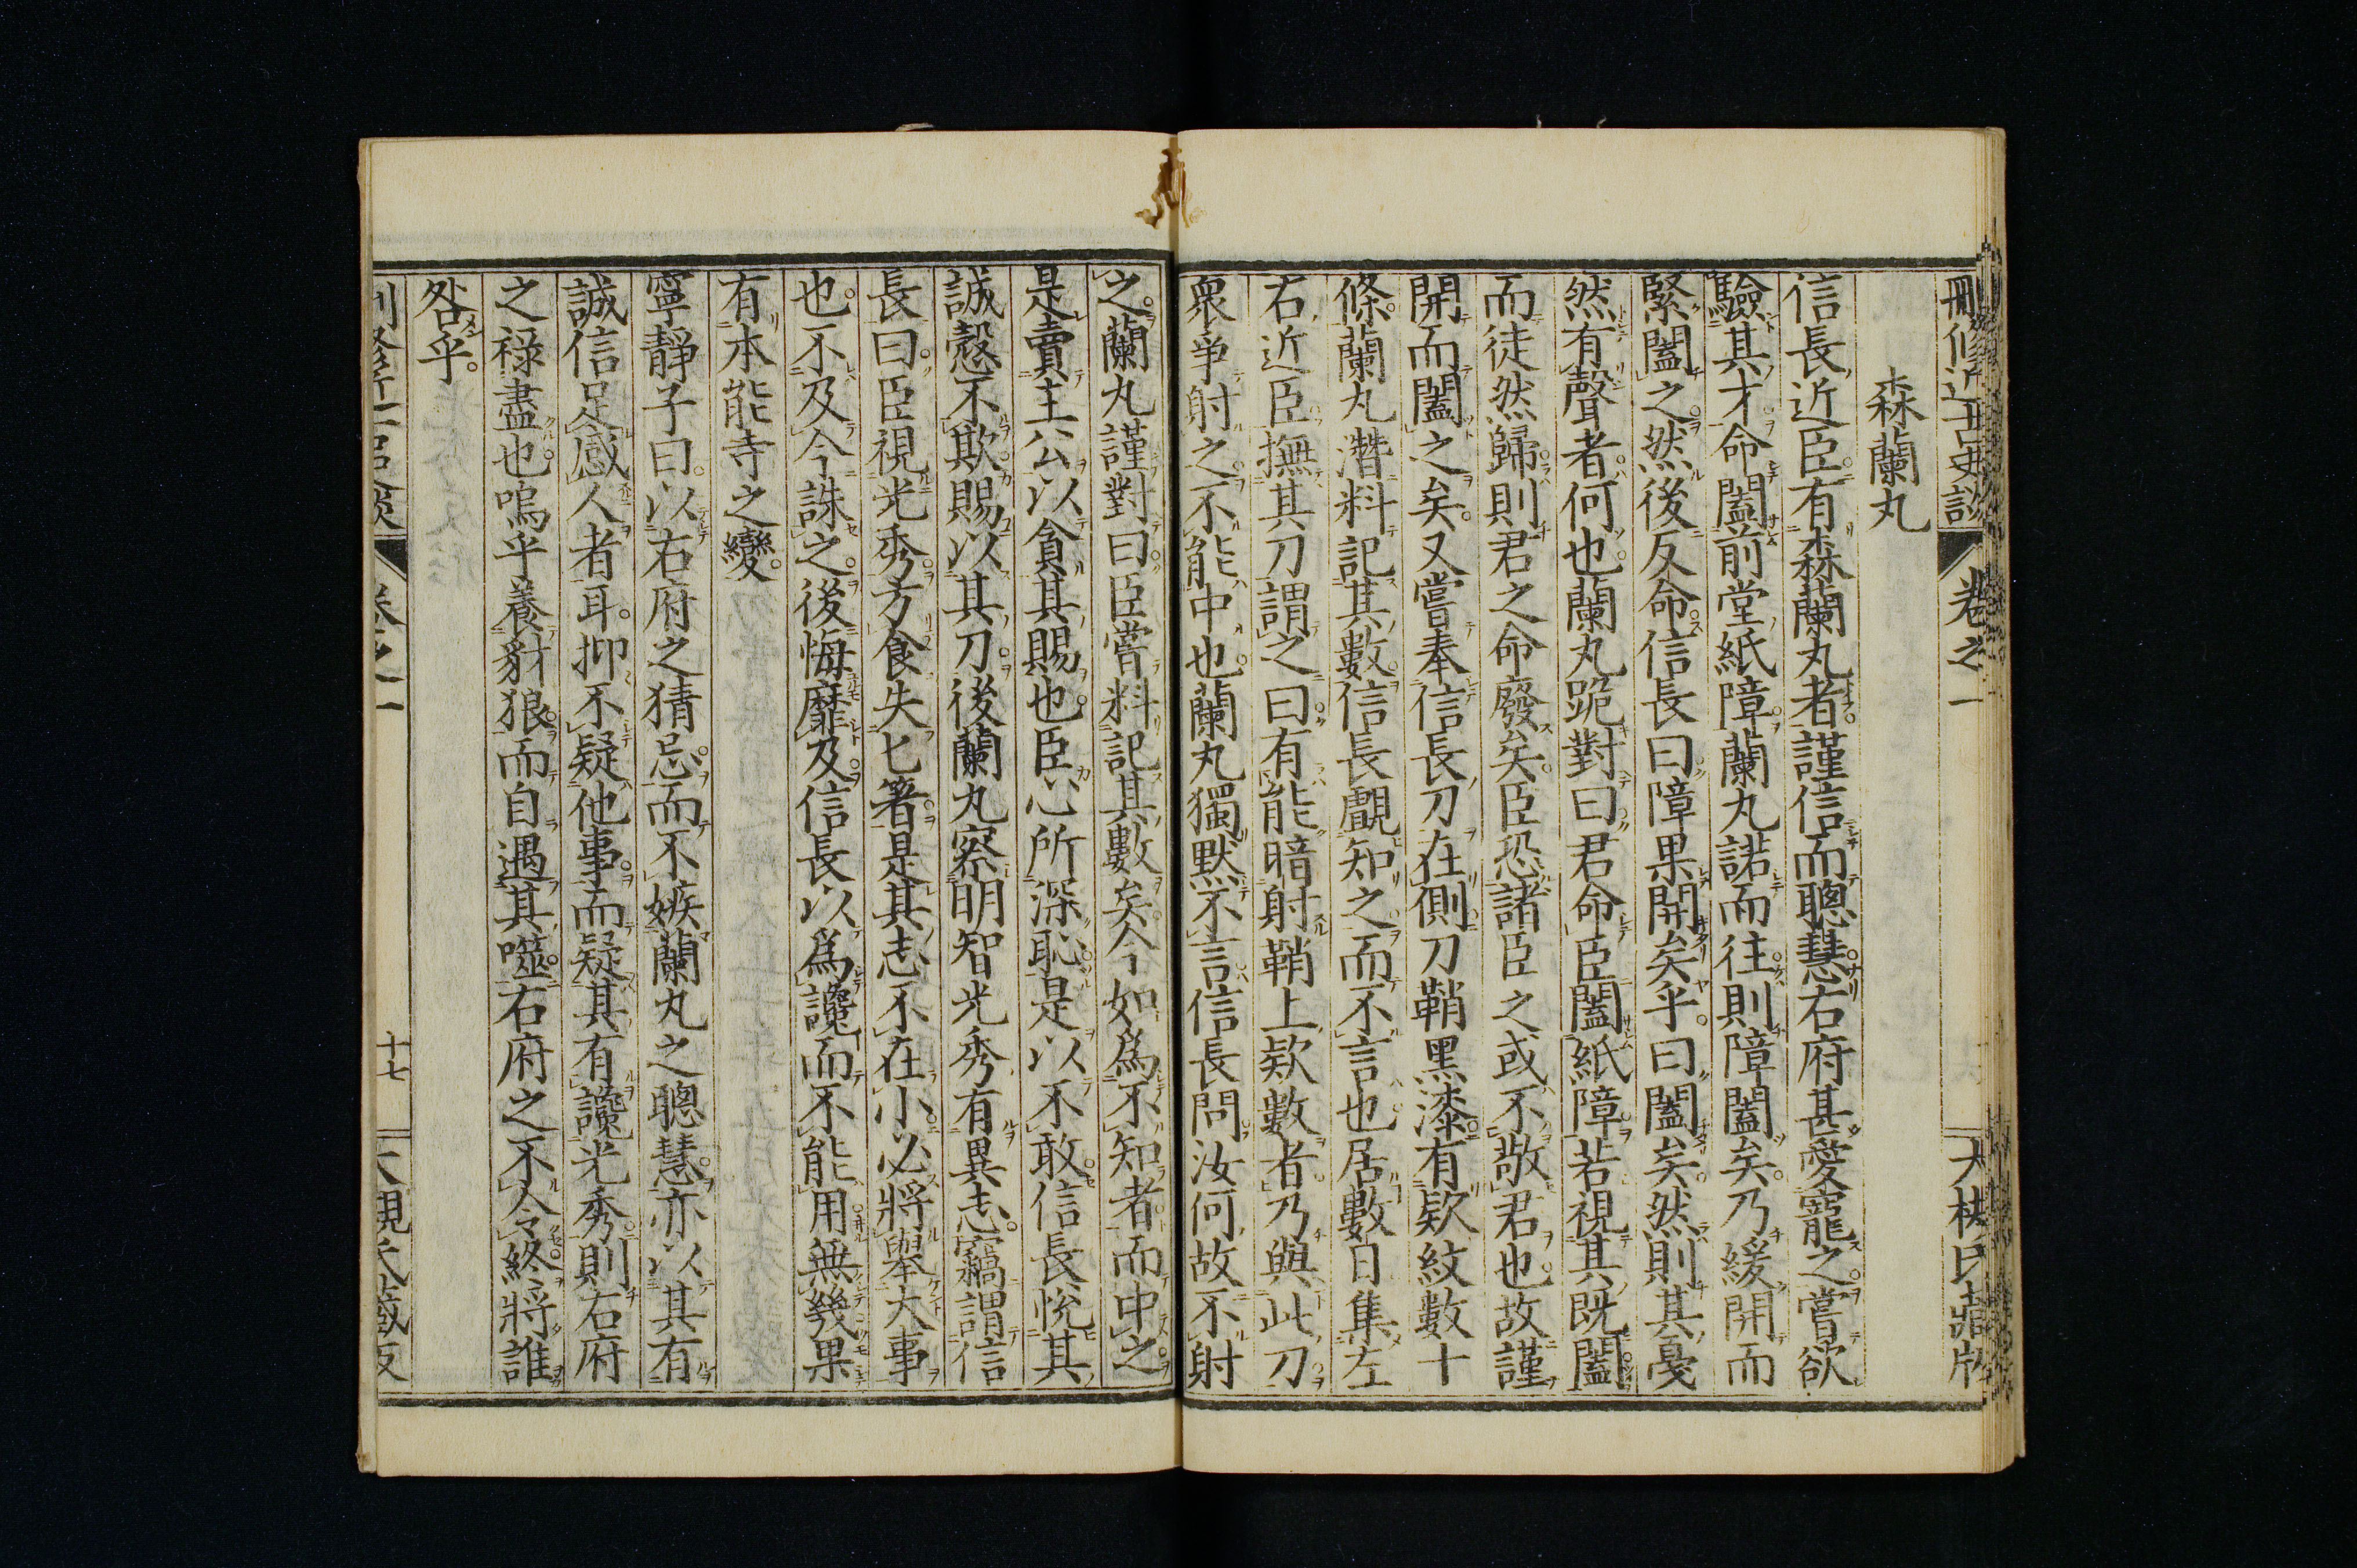 刪修近古史談
卷之一
大槻氏藏版
森蘭丸
信長近臣有森蘭丸者謹信而聰慧右府甚愛寵之嘗欲
驗其才命闔前堂紙障蘭丸諾而往則障闔矣乃緩開而
緊闔之然後反命信長曰障果開矣乎曰闔矣然則其戞
然有聲者何也蘭丸跪對曰君命臣闔紙障若視其既闔
而徒然歸則君之命廢矣臣恐諸臣之或不敬君也故謹
開而闔之矣又嘗奉信長刀在側刀鞘黑漆有欵紋數十
條蘭丸潛料記其數信長覰知之而不言也居數日集左
右近臣撫其刀謂之曰有能暗射鞘上欵數者乃與此刀
衆爭射之不能中也蘭丸獨默不言信長問汝何故不射
之蘭丸謹對曰臣嘗料記其數矣今如爲不知者而中之
是賣主公以貪其賜也臣心所深恥是以不敢信長悅其
誠愨不欺賜以其刀後蘭丸察明智光秀有異志竊謂信
長曰臣視光秀方食失匕箸是其志不在小必將舉大事
也不及今誅之後悔靡及信長以爲讒而不能用無幾果
有本能寺之變
寧靜子曰以右府之猜忌而不嫉蘭丸之聰慧亦以其有
誠信足感人者耳抑不疑他事而疑其有讒光秀則右府
之祿盡也嗚乎養豺狼而自遇其噬右府之不令終將誰
咎乎
卷之一
十七